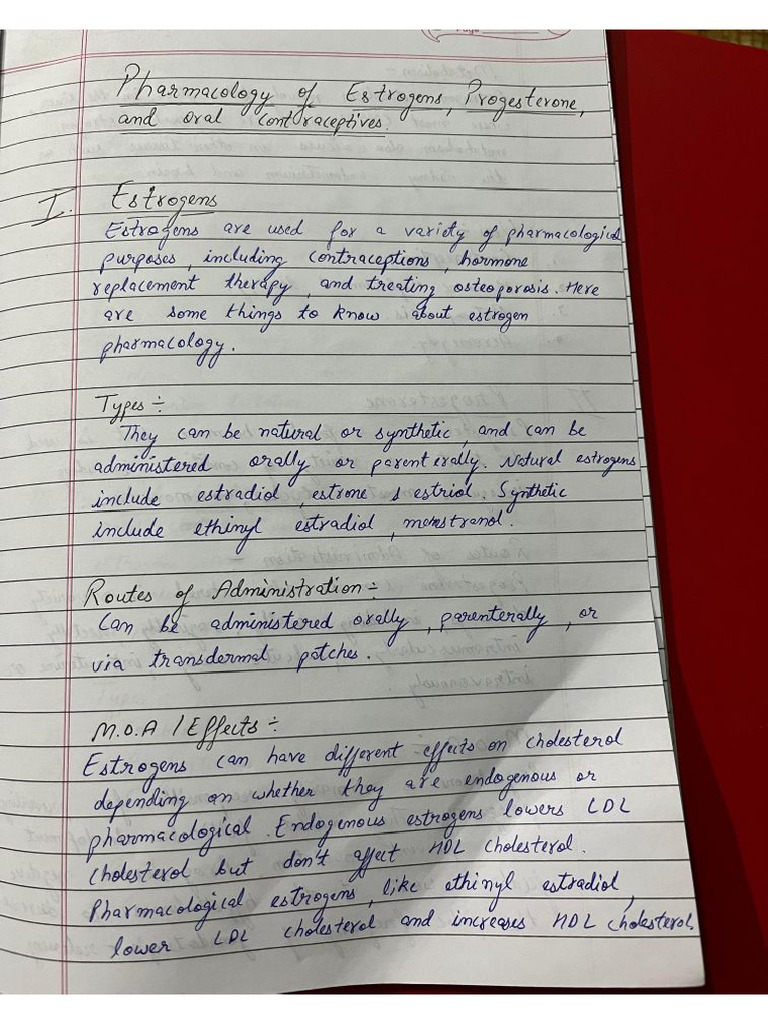 Pharmacology of Estrogens, Progesterone,
and oral contraceptives.
I. Estrogens
Estrogens are used for a variety of pharmacological
purposes, including contraceptions, hormone
replacement therapy, and treating osteoporosis. Here
are some things to know about estrogen
pharmacology.
Types :-
They can be natural or synthetic, and can be
administered orally or parenterally. Natural estrogens
include estradiol, estrone & estriol. Synthetic
include ethinyl estradiol, menstranol.
Routes of Administration :-
Can be administered orally, parenterally, or
via transdermal patches.
M.O.A / Effects :-
Estrogens can have different effects on cholesterol
depending on whether they are endogenous or
pharmacological. Endogenous estrogens lowers LDL
cholesterol but don't affect HDL cholesterol.
Pharmacological estrogens, like ethinyl estradiol,
lower LDL cholesterol and increases HDL cholesterol.